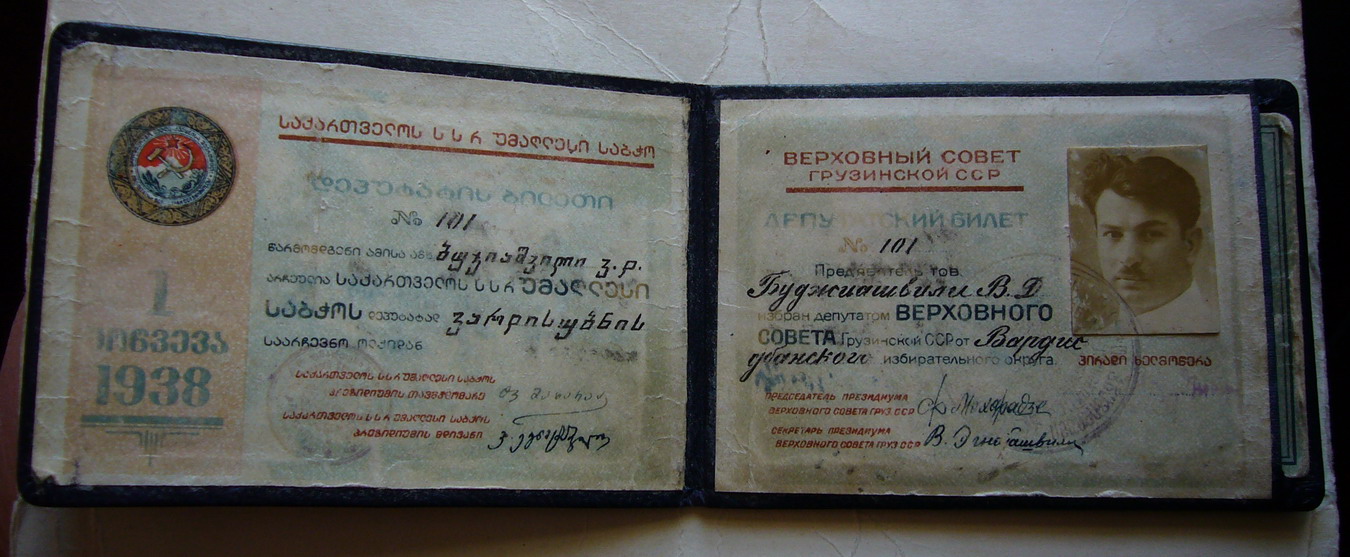 საქართველოს ს ს რ უმაღლესი საბჭო
დეპუტატის ბილეთი
№ 101
წარმომდგენი ამისა ამხ. ბუჯიაშვილი ვ. დ.
არჩეულია საქართველოს ს ს რ უმაღლესი
საბჭოს დეპუტატად ვარდისუბნის
საარჩევნო ოლქიდან
საქართველოს ს ს რ უმაღლესი საბჭოს
პრეზიდიუმის თავმჯდომარე
საქართველოს ს ს რ უმაღლესი საბჭოს
პრეზიდიუმის მდივანი
I
მოწვევა
1938
ВЕРХОВНЫЙ СОВЕТ
ГРУЗИНСКОЙ ССР
ДЕПУТАТСКИЙ БИЛЕТ
№ 101
Предявитель тов.
Буджиашвили В. Д
избран депутатом ВЕРХОВНОГО
СОВЕТА Грузинской ССР от Вардис
убанского избирательного округа.
ПРЕДСЕДАТЕЛЬ ПРЕЗИДИУМА
ВЕРХОВНОГО СОВЕТА ГРУЗ. ССР Ф Махарадзе
СЕКРЕТАРЬ ПРЕЗИДИУМА
ВЕРХОВНОГО СОВЕТА ГРУЗ ССР В. Эгнаташвили
პირადი ხელმოწერა